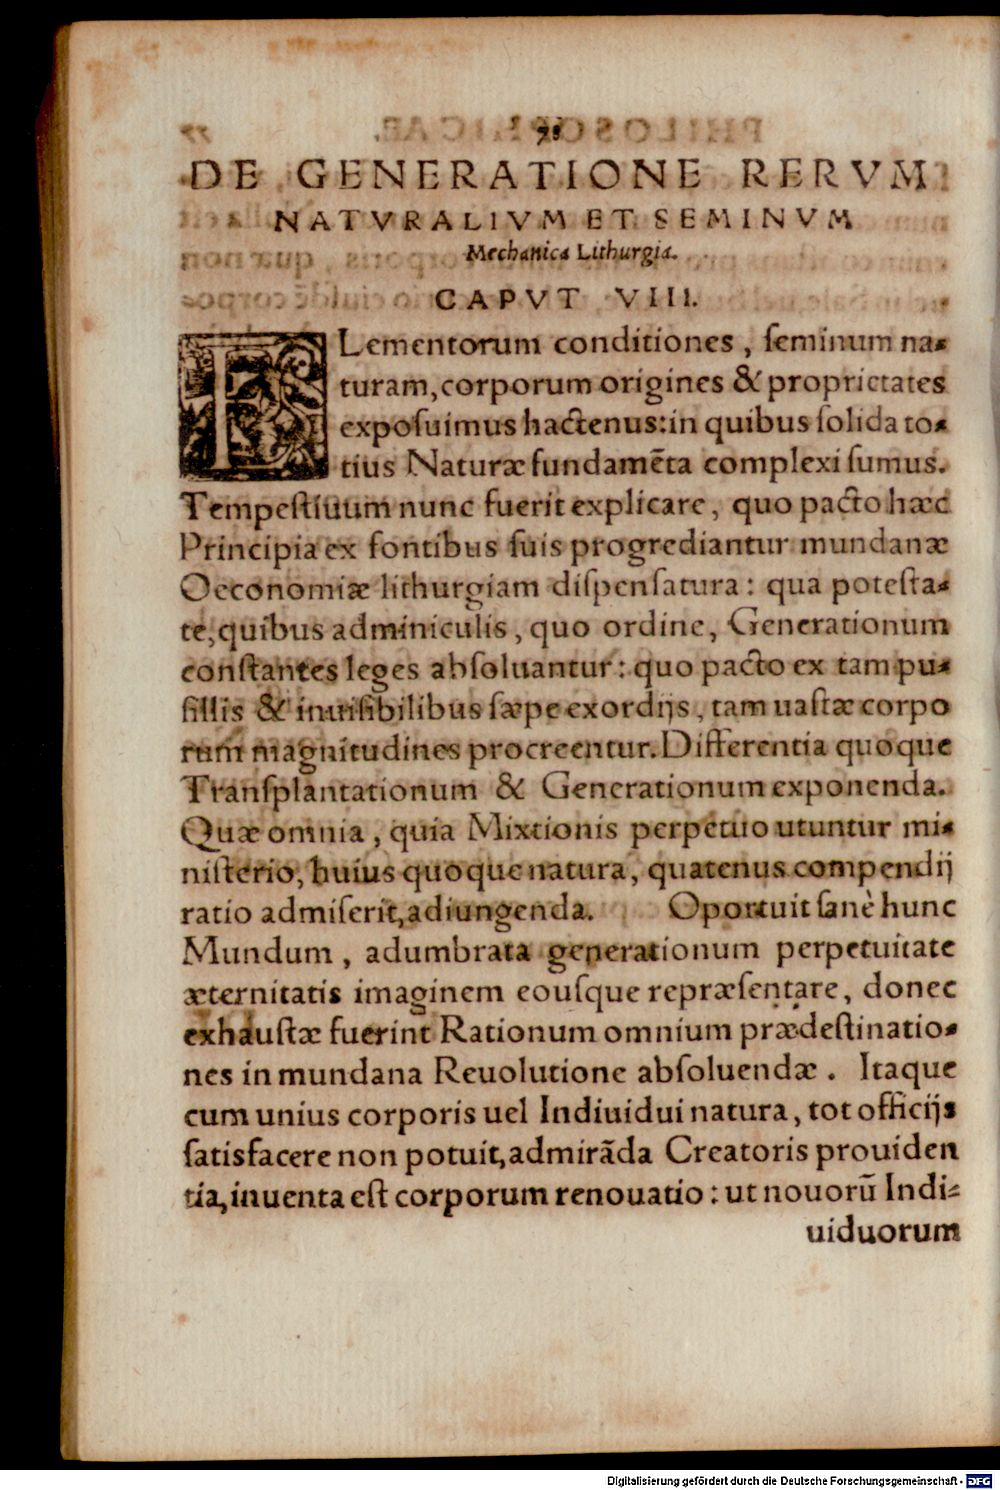 78
DE GENERATIONE RERVM
NATVRALIVM ET SEMINVM
Mechanica Lithurgia.
CAPVT VIII.
ELementorum conditiones, ſeminum na-
turam, corporum origines & proprietates
expoſuimus hactenus: in quibus ſolida to-
tius Naturæ fundamẽta complexi ſumus.
Tempeſtiuum nunc fuerit explicare, quo pacto hæc
Principia ex fontibus ſuis progrediantur mundanæ
Oeconomiæ lithurgiam diſpenſatura: qua poteſta-
te, quibus adminiculis, quo ordine, Generationum
conſtantes leges abſoluantur: quo pacto ex tam pu-
ſillis & inuiſibilibus ſæpe exordijs, tam uaſtæ corpo
rum magnitudines procreentur. Differentia quoque
Tranſplantationum & Generationum exponenda.
Quæ omnia, quia Mixtionis perpetuo utuntur mi-
niſterio, huius quoque natura, quatenus compendij
ratio admiſerit, adiungenda. Oportuit ſanè hunc
Mundum, adumbrata generationum perpetuitate
æternitatis imaginem eouſque repræſentare, donec
exhauſtæ fuerint Rationum omnium prædeſtinatio-
nes in mundana Reuolutione abſoluendæ. Itaque
cum unius corporis uel Indiuidui natura, tot officijs
ſatisfacere non potuit, admirãda Creatoris prouiden
tia, inuenta eſt corporum renouatio: ut nouorũ Indi-
uiduorum
Digitalisierung gefördert durch die Deutsche Forschungsgemeinschaft - DFG